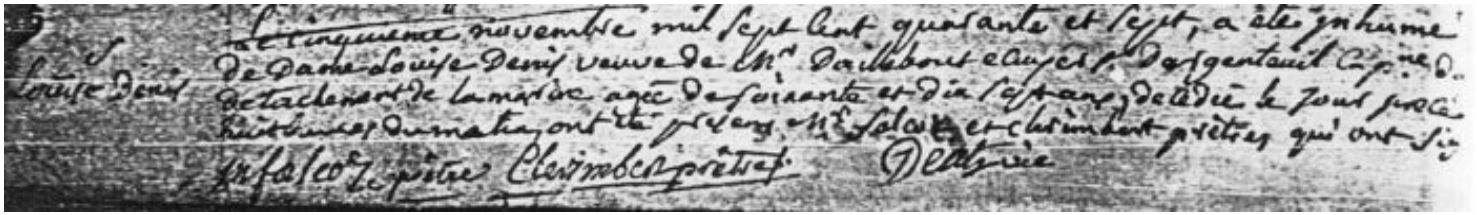 Le cinquieme novembre mil sept cent quarante et sept, a été inhumé
S
de Dame Louise Denis veuve de Mr. Daillebout ecuyer Sr. Dargenteuil Capne. d
Louise Denis
detachement de la marine agée de soixante et dix sept ans, decedée le jour prece
huit heures du matin, ont été presens Mr. falcoz et Clerimbert prêtres qui ont sig
falcoz prêtre Clerimbert prêtre Deatrie